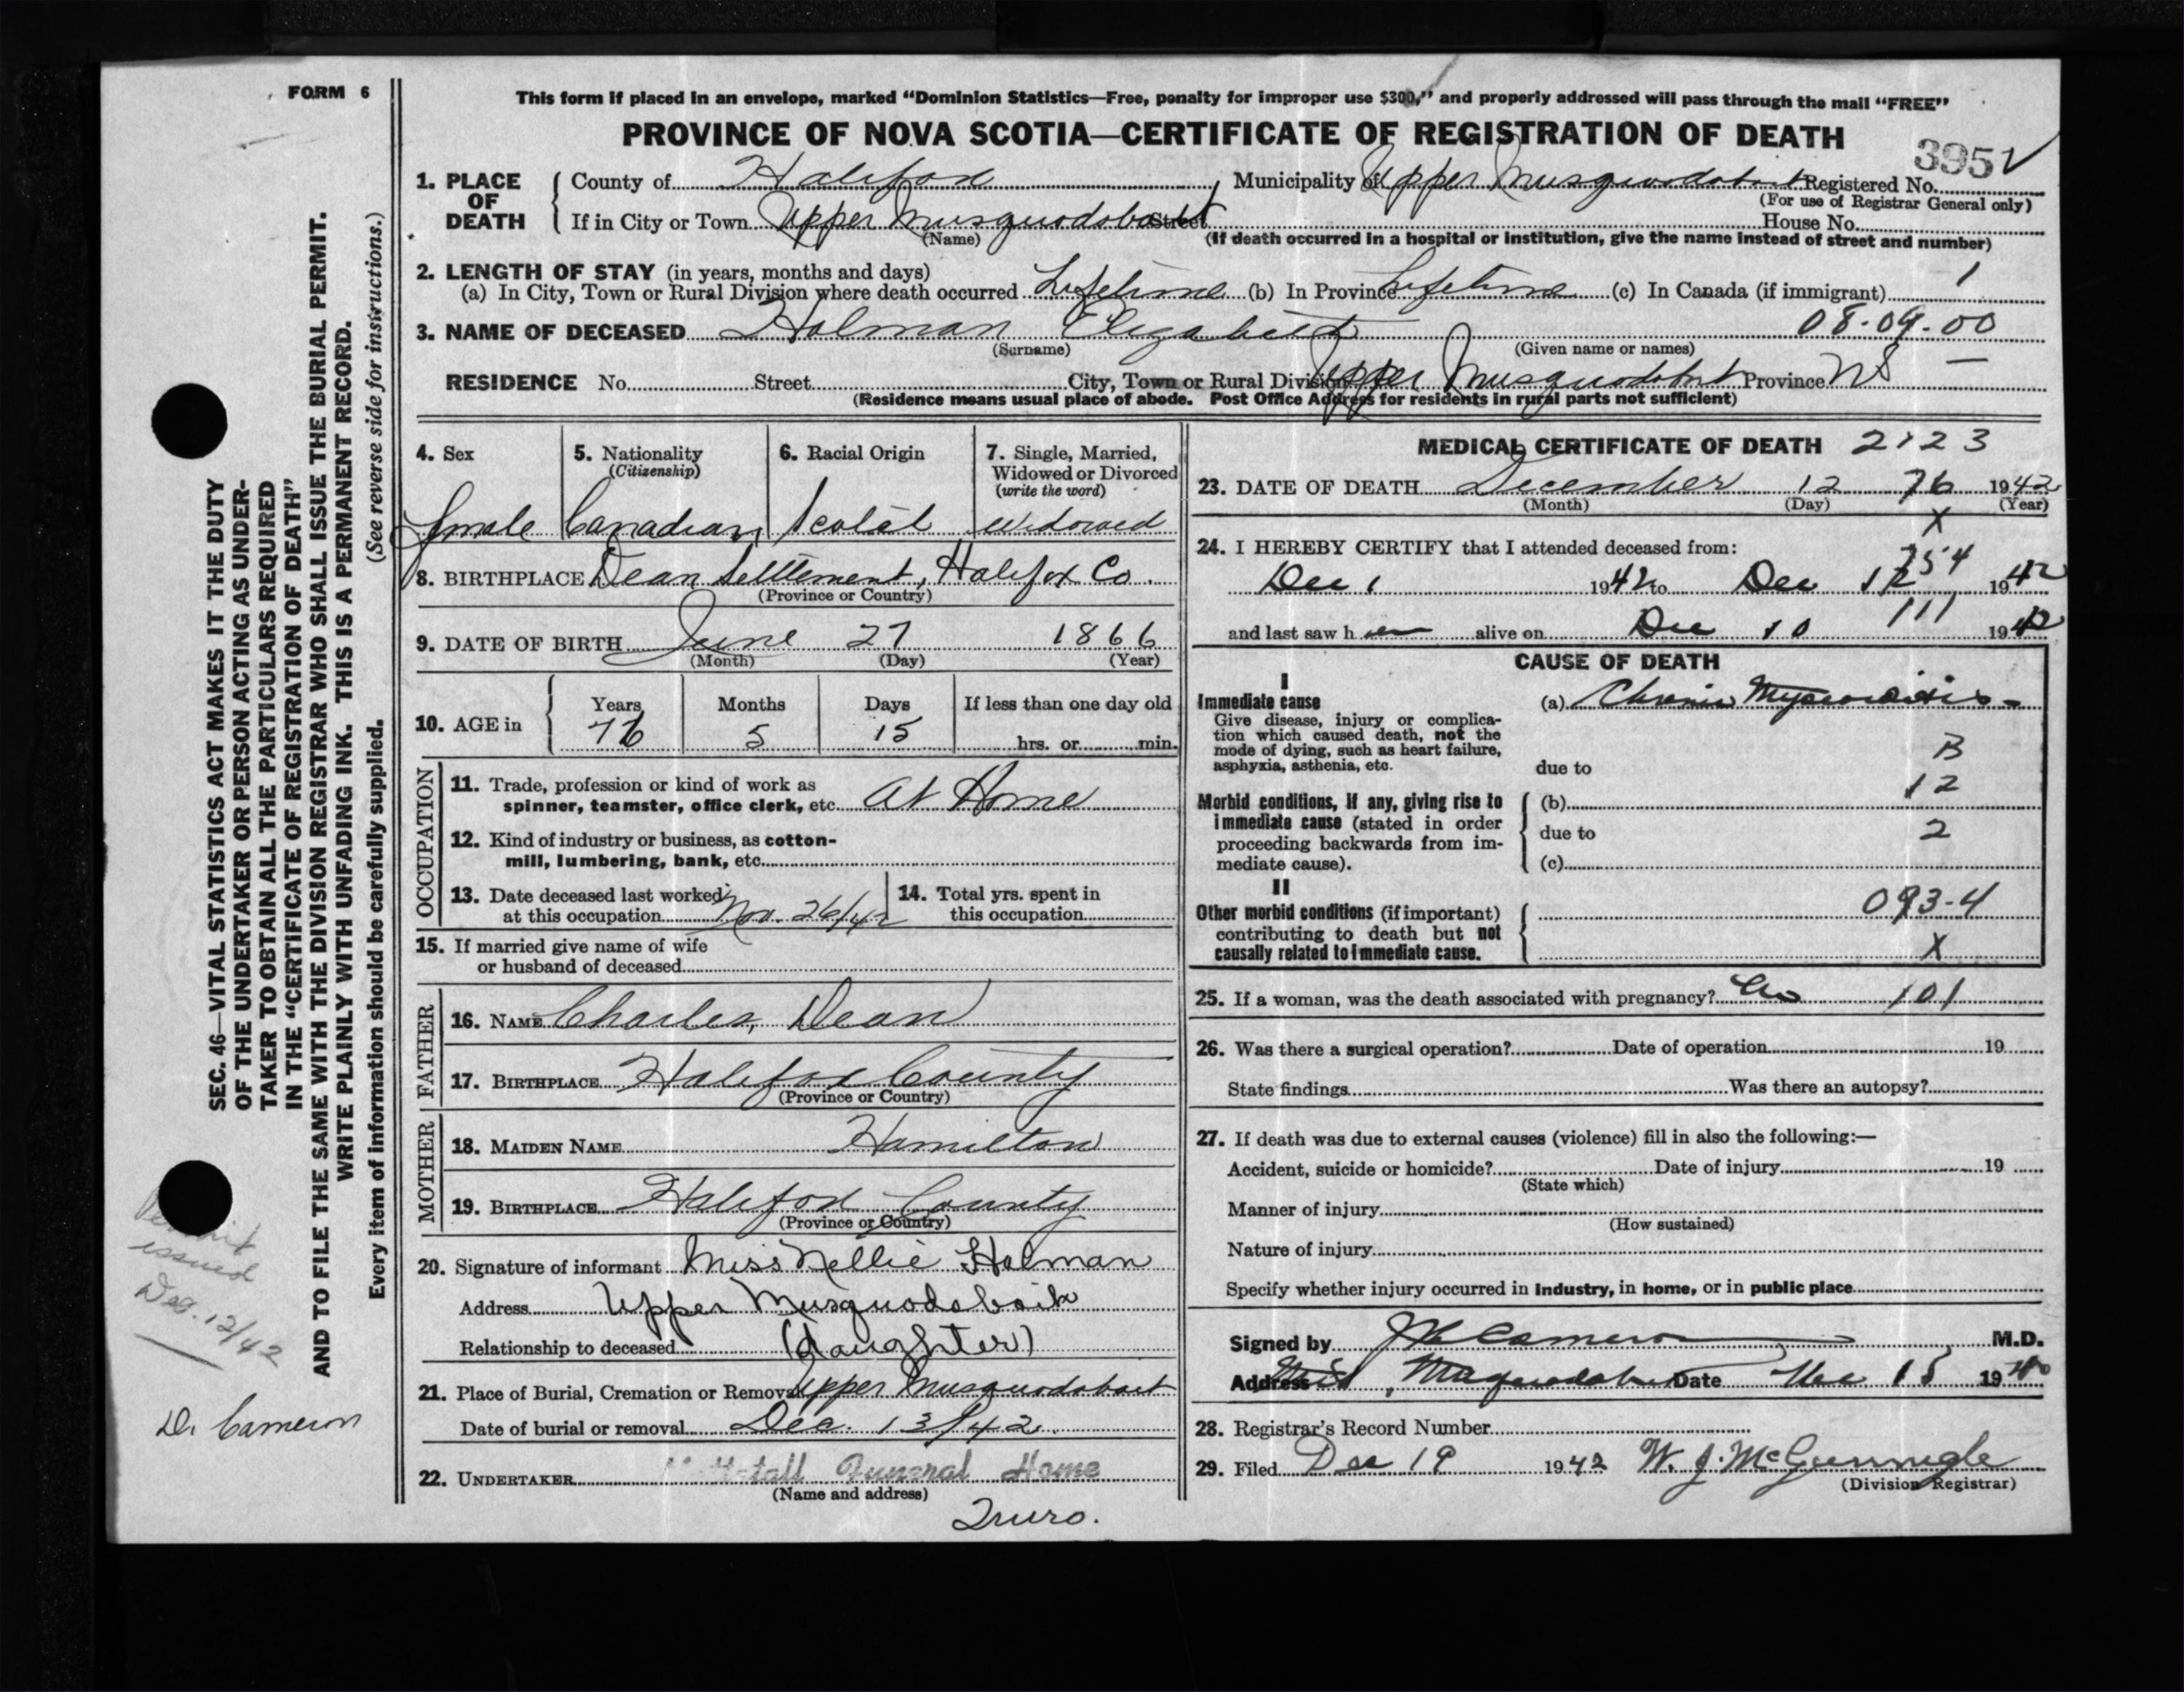 FORM 6
This form if placed in an envelope, marked "Dominion Statistics—Free, penalty for improper use $300," and properly addressed will pass through the mail "FREE"
PROVINCE OF NOVA SCOTIA—CERTIFICATE OF REGISTRATION OF DEATH
395
1. PLACE OF DEATH
County of Halifax Municipality of Upper Musquodoboit Registered No.
(For use of Registrar General only)
If in City or Town Upper Musquodoboit Street House No.
(Name) (If death occurred in a hospital or institution, give the name instead of street and number)
2. LENGTH OF STAY (in years, months and days)
(a) In City, Town or Rural Division where death occurred Lifetime (b) In Province Lifetime (c) In Canada (if immigrant) 1
3. NAME OF DECEASED Holman Elizabeth 08-09-00
(Surname) (Given name or names)
RESIDENCE No. Street City, Town or Rural Division Upper Musquodoboit Province NS —
(Residence means usual place of abode. Post Office Address for residents in rural parts not sufficient)
4. Sex 5. Nationality (Citizenship) 6. Racial Origin 7. Single, Married, Widowed or Divorced (write the word)
female Canadian Scotch Widowed
8. BIRTHPLACE Dean Settlement, Halifax Co.
(Province or Country)
9. DATE OF BIRTH June 27 1866
(Month) (Day) (Year)
10. AGE in Years Months Days If less than one day old
76 5 15 hrs. or min.
OCCUPATION
11. Trade, profession or kind of work as
spinner, teamster, office clerk, etc. At Home
12. Kind of industry or business, as cotton-
mill, lumbering, bank, etc.
13. Date deceased last worked
at this occupation Nov. 26/42
14. Total yrs. spent in
this occupation
15. If married give name of wife
or husband of deceased
FATHER
16. NAME Charles Dean
17. BIRTHPLACE Halifax County
(Province or Country)
MOTHER
18. MAIDEN NAME Hamilton
19. BIRTHPLACE Halifax County
(Province or Country)
20. Signature of informant Miss Nellie Holman
Address Upper Musquodoboit
Relationship to deceased (daughter)
21. Place of Burial, Cremation or Removal Upper Musquodoboit
Date of burial or removal Dec. 13/42.
22. UNDERTAKER Funeral Home
(Name and address)
Truro.
MEDICAL CERTIFICATE OF DEATH 2123
23. DATE OF DEATH December 12 76 1942
(Month) (Day) (Year)
X
24. I HEREBY CERTIFY that I attended deceased from:
254
Dec 1 1942 to Dec 12 1942
111
and last saw her alive on Dec 10 1942
CAUSE OF DEATH
I
Immediate cause
Give disease, injury or complica-
tion which caused death, not the
mode of dying, such as heart failure,
asphyxia, asthenia, etc.
(a) Chronic Myocarditis
B
due to
12
Morbid conditions, if any, giving rise to
immediate cause (stated in order
proceeding backwards from im-
mediate cause).
(b)
due to 2
(c)
II
Other morbid conditions (if important)
contributing to death but not
causally related to immediate cause.
093-4
X
25. If a woman, was the death associated with pregnancy? No 101
26. Was there a surgical operation? Date of operation 19
State findings Was there an autopsy?
27. If death was due to external causes (violence) fill in also the following:—
Accident, suicide or homicide? Date of injury 19
(State which)
Manner of injury
(How sustained)
Nature of injury
Specify whether injury occurred in industry, in home, or in public place
Signed by Cameron M.D.
Address Mid. Musquodoboit Date Dec 15 19
28. Registrar's Record Number
29. Filed Dec 19 1942 W. J. McGunnigle
(Division Registrar)
SEC. 46—VITAL STATISTICS ACT MAKES IT THE DUTY
OF THE UNDERTAKER OR PERSON ACTING AS UNDER-
TAKER TO OBTAIN ALL THE PARTICULARS REQUIRED
IN THE "CERTIFICATE OF REGISTRATION OF DEATH"
AND TO FILE THE SAME WITH THE DIVISION REGISTRAR WHO SHALL ISSUE THE BURIAL PERMIT.
WRITE PLAINLY WITH UNFADING INK. THIS IS A PERMANENT RECORD.
Every item of information should be carefully supplied. (See reverse side for instructions.)
Permit
issued
Dec. 12/42
Dr. Cameron